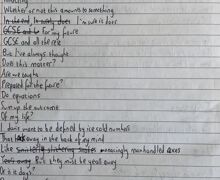 Whether or not this amounts to something
In the end, in truth, does I'm sure is does
GCSE and for my future
GCSE and all the rest
But I've always thought
Does this matter?
Are we taught
Prepared for the future?
Do equations
Sum up the outcomes
Of my life?
I don't want to be defined by ice cold numbers
That away in the back of my mind
Like menacingly manhandled axes
But they must be years away
Or is it days?